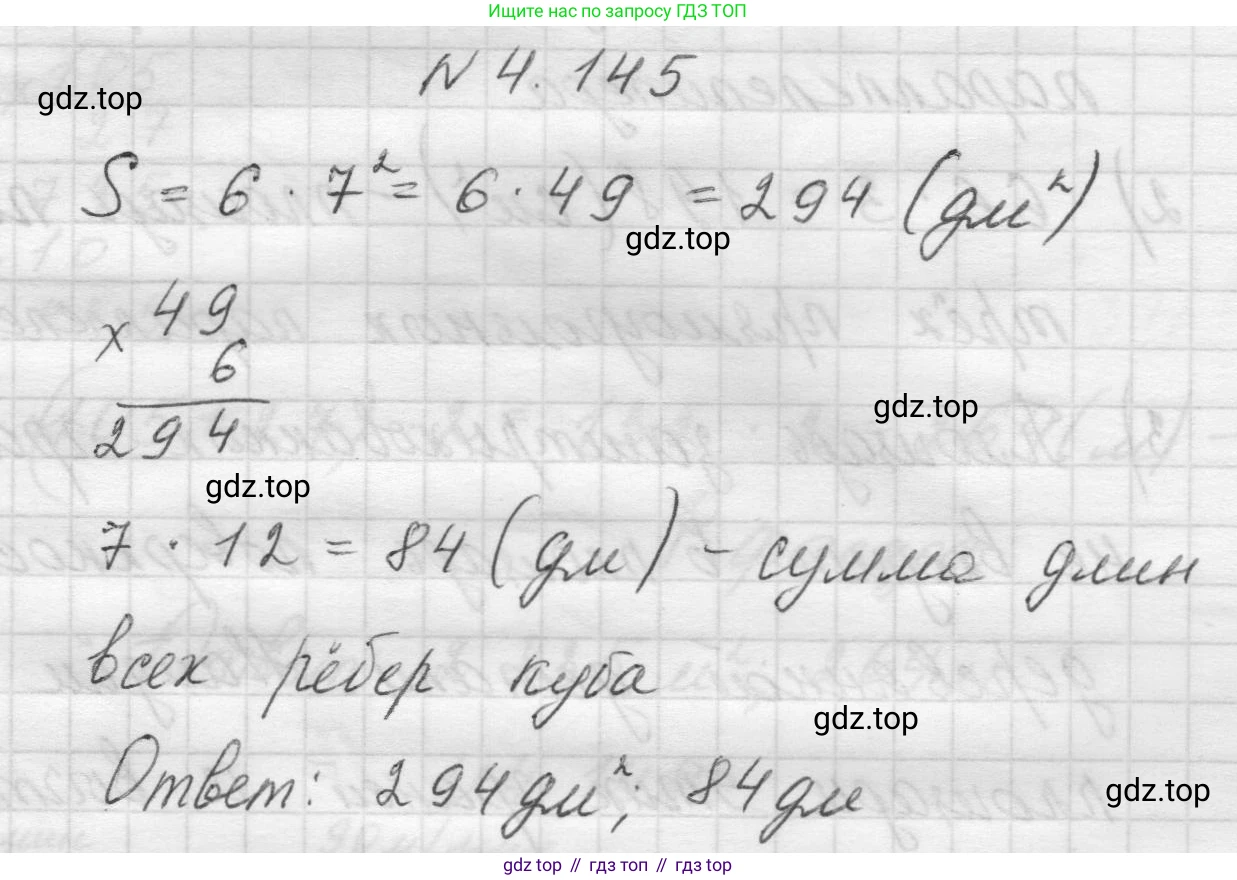 Ищите нас по запросу ГДЗ ТОП
N 4.145
gdz.top
S = 6 · 7² = 6 · 49 = 294 (дм²)
gdz.top
× 49
6
294
gdz.top
gdz.top
7 · 12 = 84 (дм) - сумма длин
всех рёбер куба
gdz.top
Ответ: 294 дм²; 84 дм
gdz.top
gdz top // гдз топ // гдз top